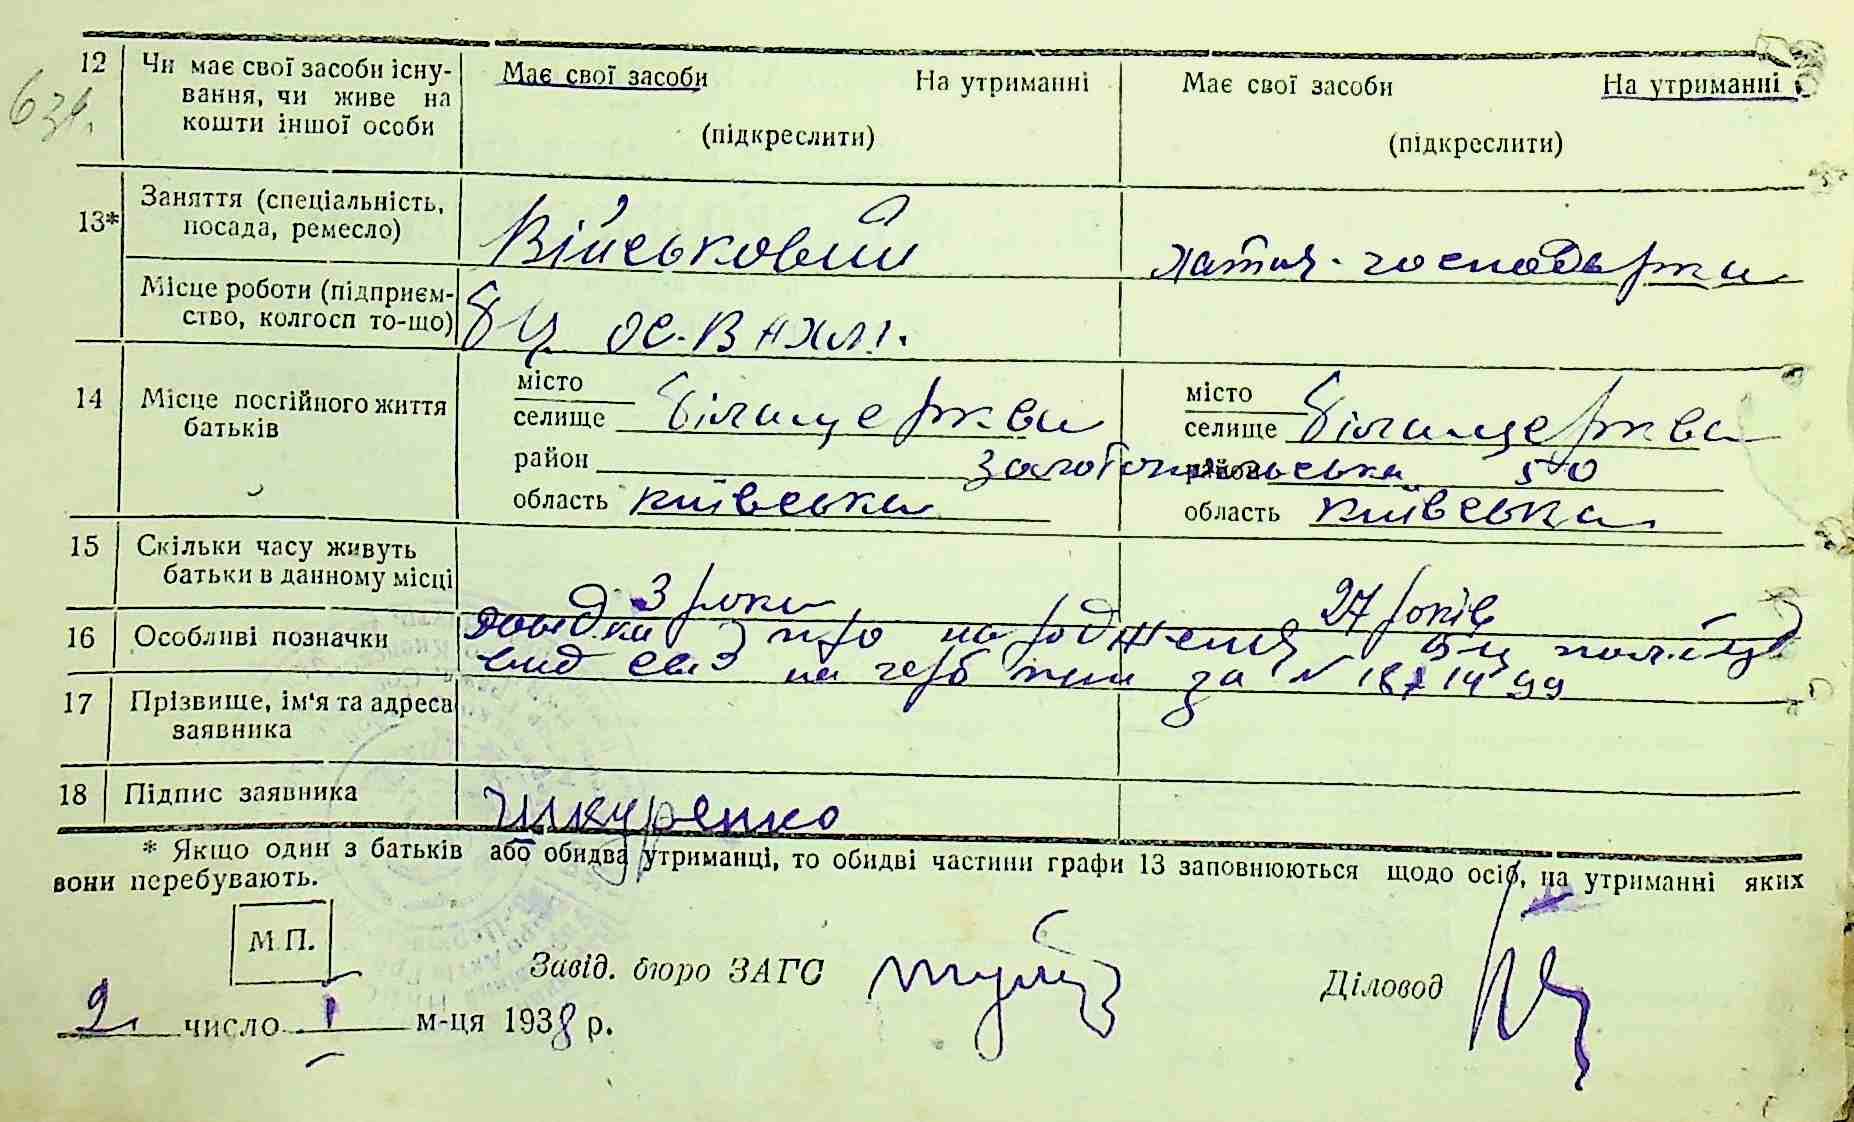 63 р.
12 Чи має свої засоби існу- Має свої засоби На утриманні Має свої засоби На утриманні
вання, чи живе на
кошти іншої особи (підкреслити) (підкреслити)
13* Заняття (спеціальність,
посада, ремесло) Військовий хатня-господарка
Місце роботи (підприєм-
ство, колгосп то-що) БЦ
14 Місце постійного життя
батьків
місто місто
селище Біла церква селище Біла церква
район район 50
область київська область київська
15 Скільки часу живуть
батьки в данному місці 3 роки 27 років
16 Особливі позначки довідки про народження БЦ
на за №
17 Прізвище, ім'я та адреса
заявника
18 Підпис заявника Шкуренко
* Якщо один з батьків або обидва утриманці, то обидві частини графи 13 заповнюються щодо осіб, на утриманні яких
вони перебувають.
М.П.
Завід. бюро ЗАГС Діловод
2 число I м-ця 1938 р.